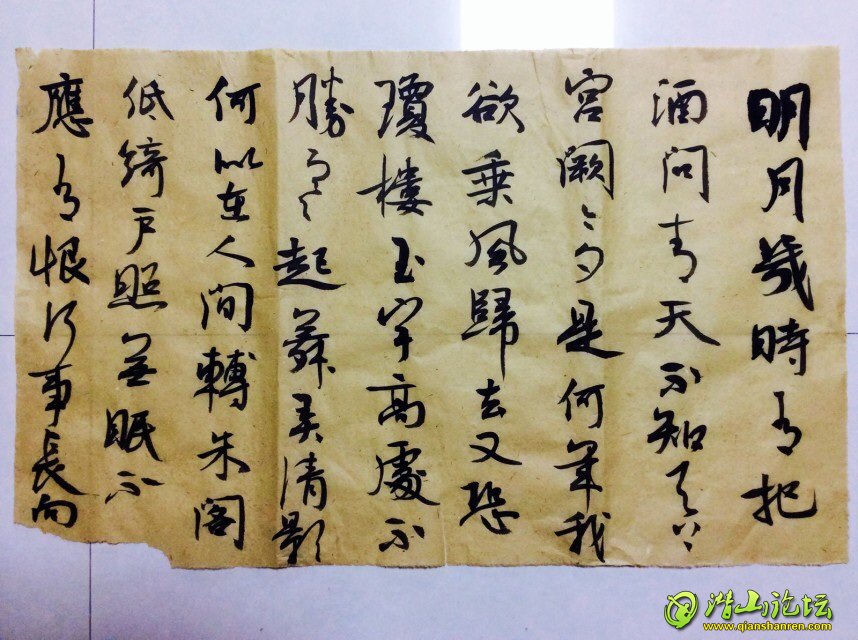 明月幾時有把
酒问青天不知天上
宫阙今夕是何年我
欲乘風歸去又恐
瓊樓玉宇高處不
勝寒起舞弄清影
何似在人间轉朱阁
低綺户照無眠不
應有恨何事長向
潜山论坛
www.qianshanren.com